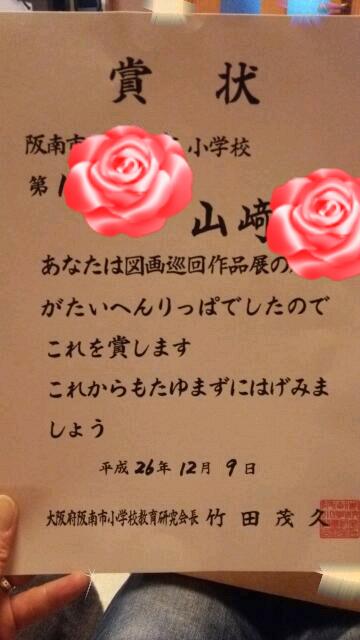 賞状
阪南市 小学校
第1
山﨑
あなたは図画巡回作品展の
がたいへんりっぱでしたので
これを賞します
これからもたゆまずにはげみま
しょう
平成26年12月9日
大阪府阪南市小学校教育研究会長 竹田茂久